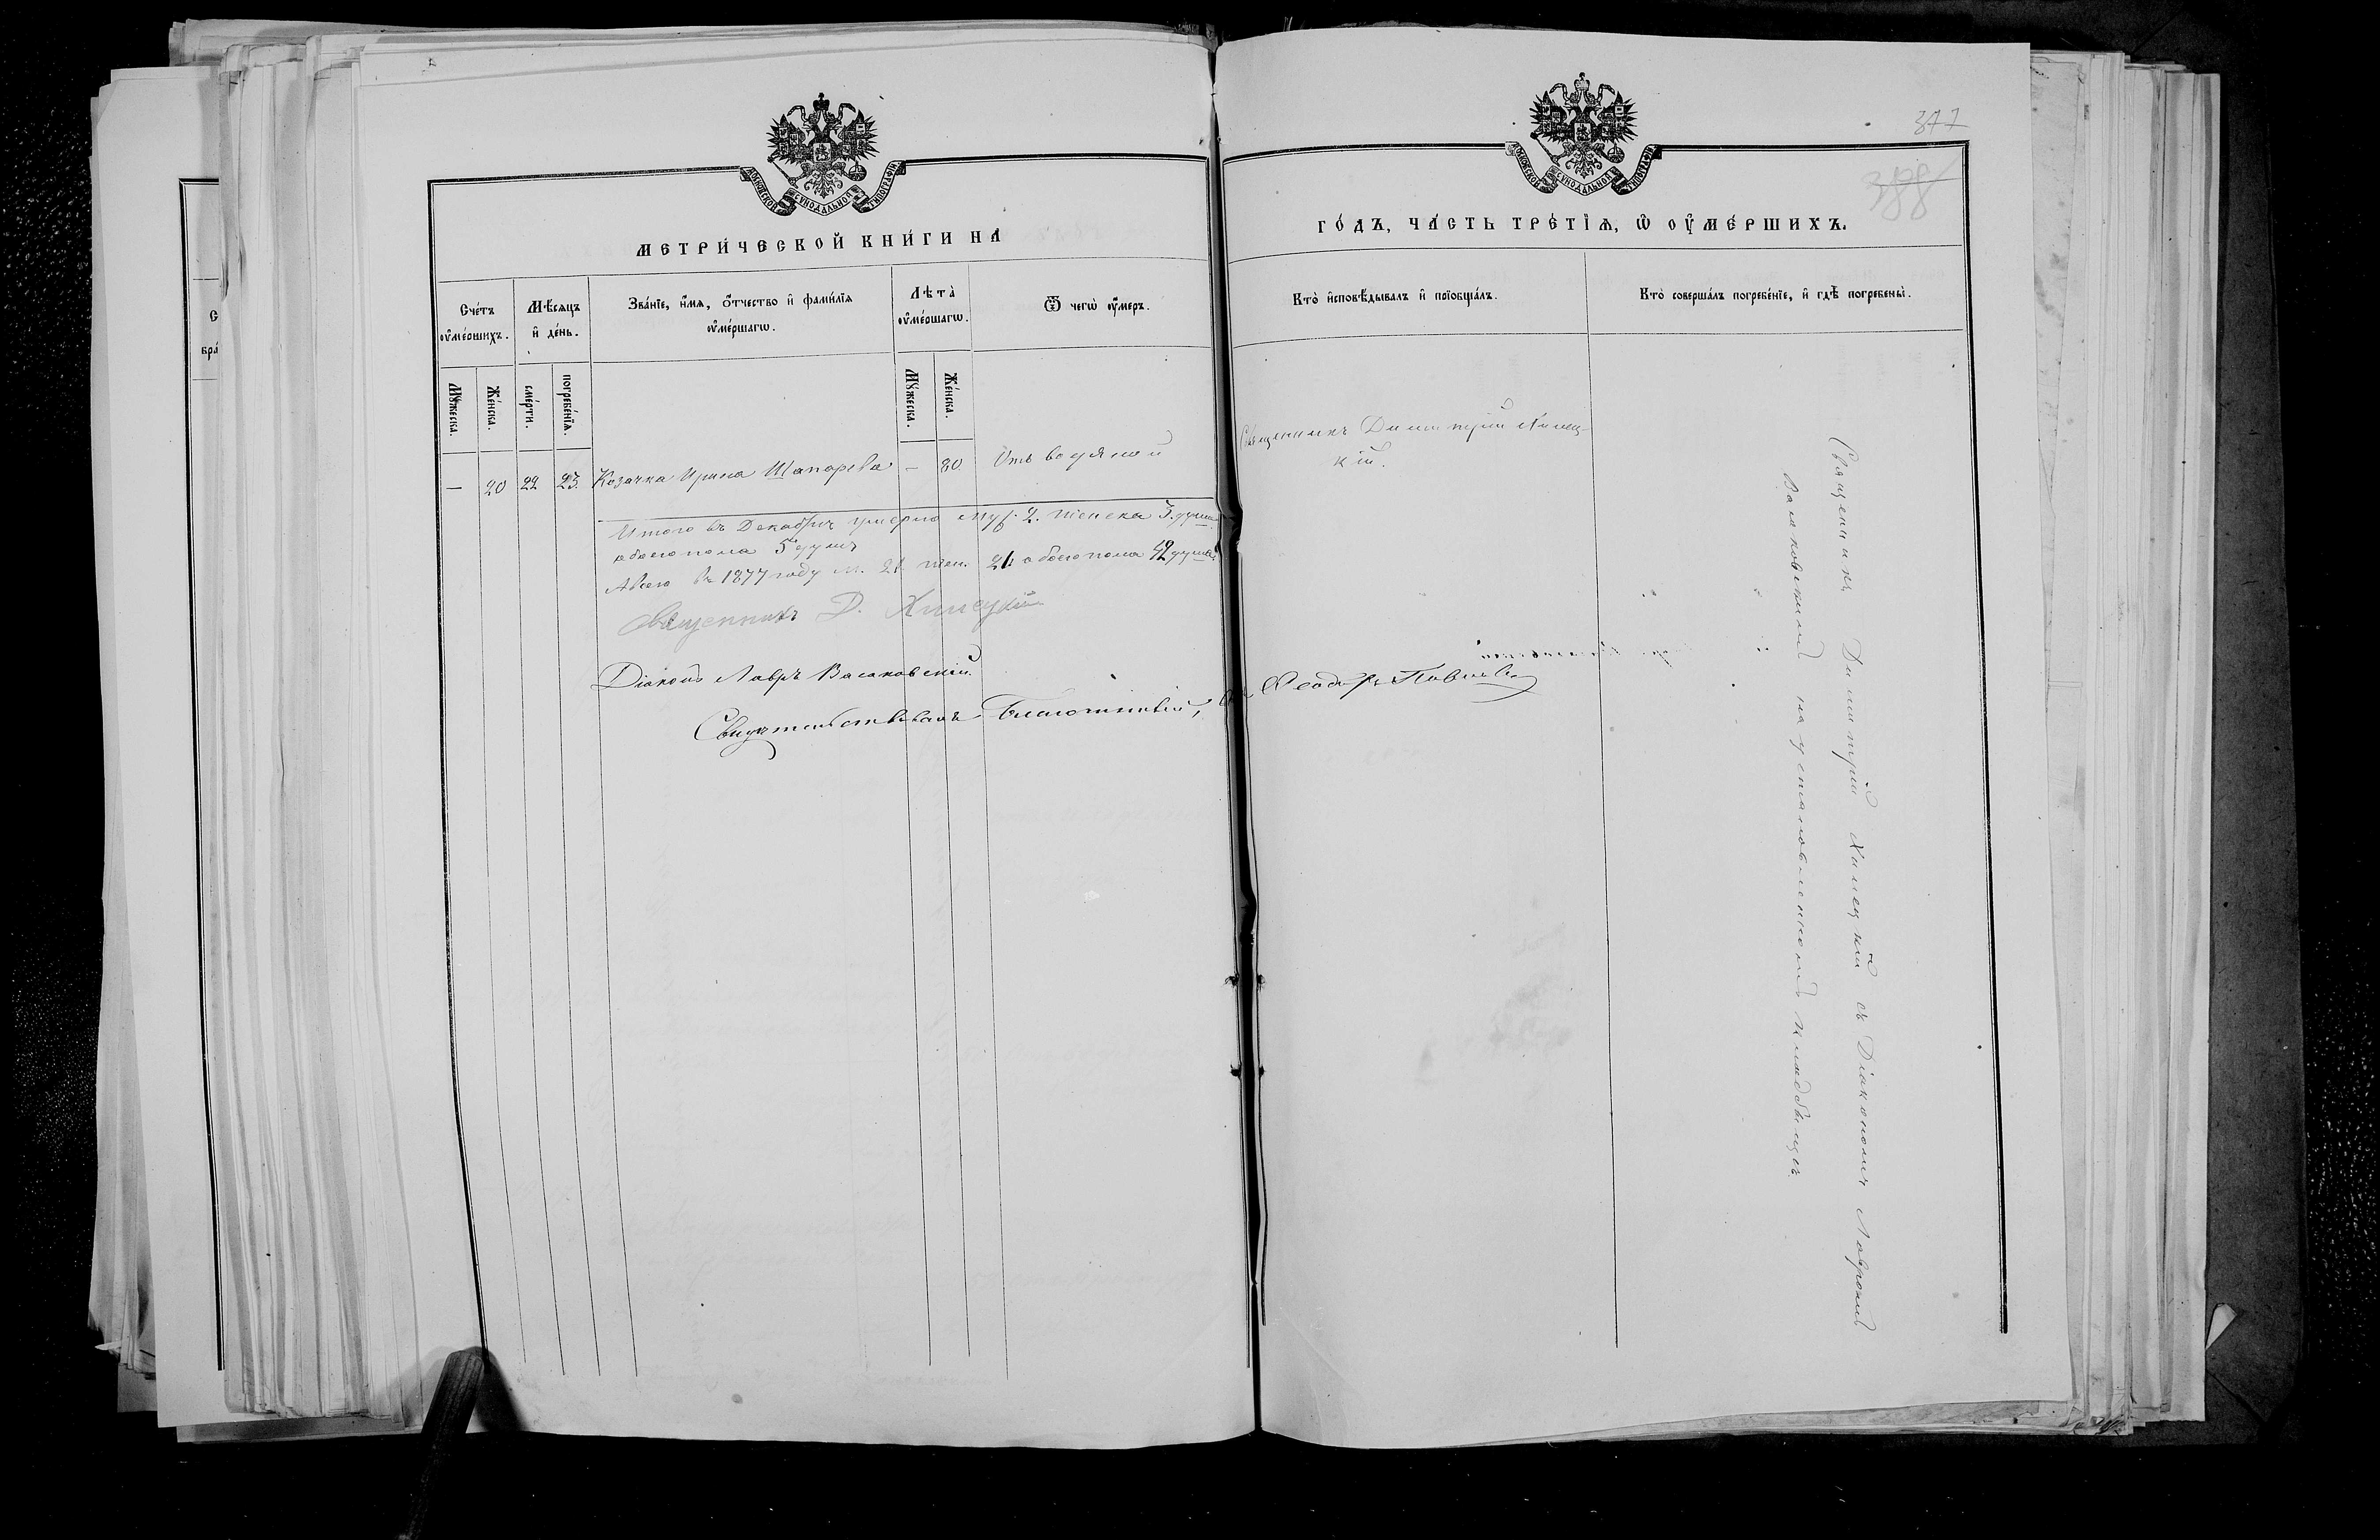 МОСКОВСКОЙ СѴНОДАЛЬНОЙ ТИПОГРАФІИ
МЕТРИ́ЧЕСКОЙ КНИ́ГИ НА
Сче́тъ ᲂу҆ме́ршихъ.
Мѣ́сяцъ и҆ де́нь.
Зва́нїе, и҆́мя, ѻ҆́тчество и҆ фами́лїя ᲂу҆ме́ршагѡ.
Лѣта̀ ᲂу҆ме́ршагѡ.
Ѿ чегѡ̀ ᲂу҆́меръ.
Мꙋ́жеска.
Же́нска.
сме́рти.
погребе́нїѧ.
Мꙋ́жеска.
Же́нска.
— 20 22 23. Козачка Ирина Шапарева — 80 Отъ водяной
Итого въ Декабрѣ умерло муж. 2. женска 3. душ.
обоего пола 5 душъ
А всего въ 1877 году м. 21 жен. 21. обоего пола 42 душ.
Священникъ Д. Хинецкій
Діаконъ Лавръ Васаковскій.
Свидѣтельствовалъ Благочинный, Св. Ѳеодоръ Павловъ
МОСКОВСКОЙ СѴНОДАЛЬНОЙ ТИПОГРАФІИ
377
388
ГО́ДЪ, ЧА́СТЬ ТРЕ́ТЇѦ, Ѡ҆ ОУ҆МЕ́РШИХЪ.
Кто̀ и҆сповѣ́дывалъ и҆ прїобща́лъ.
Кто̀ соверша́лъ погребе́нїе, и҆ гдѣ̀ погребены̀.
Священникъ Димитрій Хинец-
кій.
Священникъ Димитрій Хинецкій съ Діакономъ Лавромъ
Васаковскимъ на установленномъ кладбищѣ.